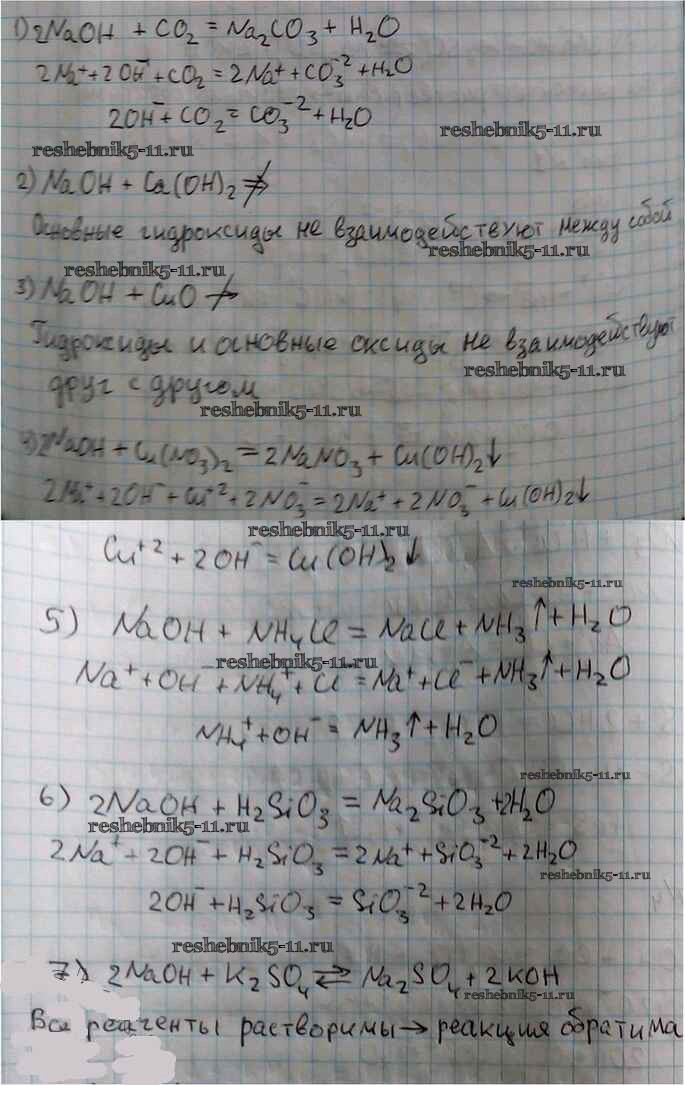 1) 2NaOH + CO₂ = Na₂CO₃ + H₂O
2Na⁺ + 2OH⁻ + CO₂ = 2Na⁺ + CO₃⁻² + H₂O
2OH⁻ + CO₂ = CO₃⁻² + H₂O
reshebnik5-11.ru
reshebnik5-11.ru
2) NaOH + Ca(OH)₂ ⇏
Основные гидроксиды не взаимодействуют между собой
reshebnik5-11.ru
reshebnik5-11.ru
3) NaOH + CuO ↛
Гидроксиды и основные оксиды не взаимодействуют
reshebnik5-11.ru
друг с другом
reshebnik5-11.ru
2NaOH + Cu(NO₃)₂ = 2NaNO₃ + Cu(OH)₂↓
2Na⁺ + 2OH⁻ + Cu⁺² + 2NO₃⁻ = 2Na⁺ + 2NO₃⁻ + Cu(OH)₂↓
reshebnik5-11.ru
Cu⁺² + 2OH⁻ = Cu(OH)₂↓
reshebnik5-11.ru
5) NaOH + NH₄Cl = NaCl + NH₃↑ + H₂O
reshebnik5-11.ru
Na⁺ + OH⁻ + NH₄⁺ + Cl⁻ = Na⁺ + Cl⁻ + NH₃↑ + H₂O
NH₄⁺ + OH⁻ = NH₃↑ + H₂O
reshebnik5-11.ru
6) 2NaOH + H₂SiO₃ = Na₂SiO₃ + 2H₂O
reshebnik5-11.ru
2Na⁺ + 2OH⁻ + H₂SiO₃ = 2Na⁺ + SiO₃⁻² + 2H₂O
reshebnik5-11.ru
2OH⁻ + H₂SiO₃ = SiO₃⁻² + 2H₂O
reshebnik5-11.ru
7) 2NaOH + K₂SO₄ ⇄ Na₂SO₄ + 2KOH
reshebnik5-11.ru
Все реагенты растворимы → реакция обратима